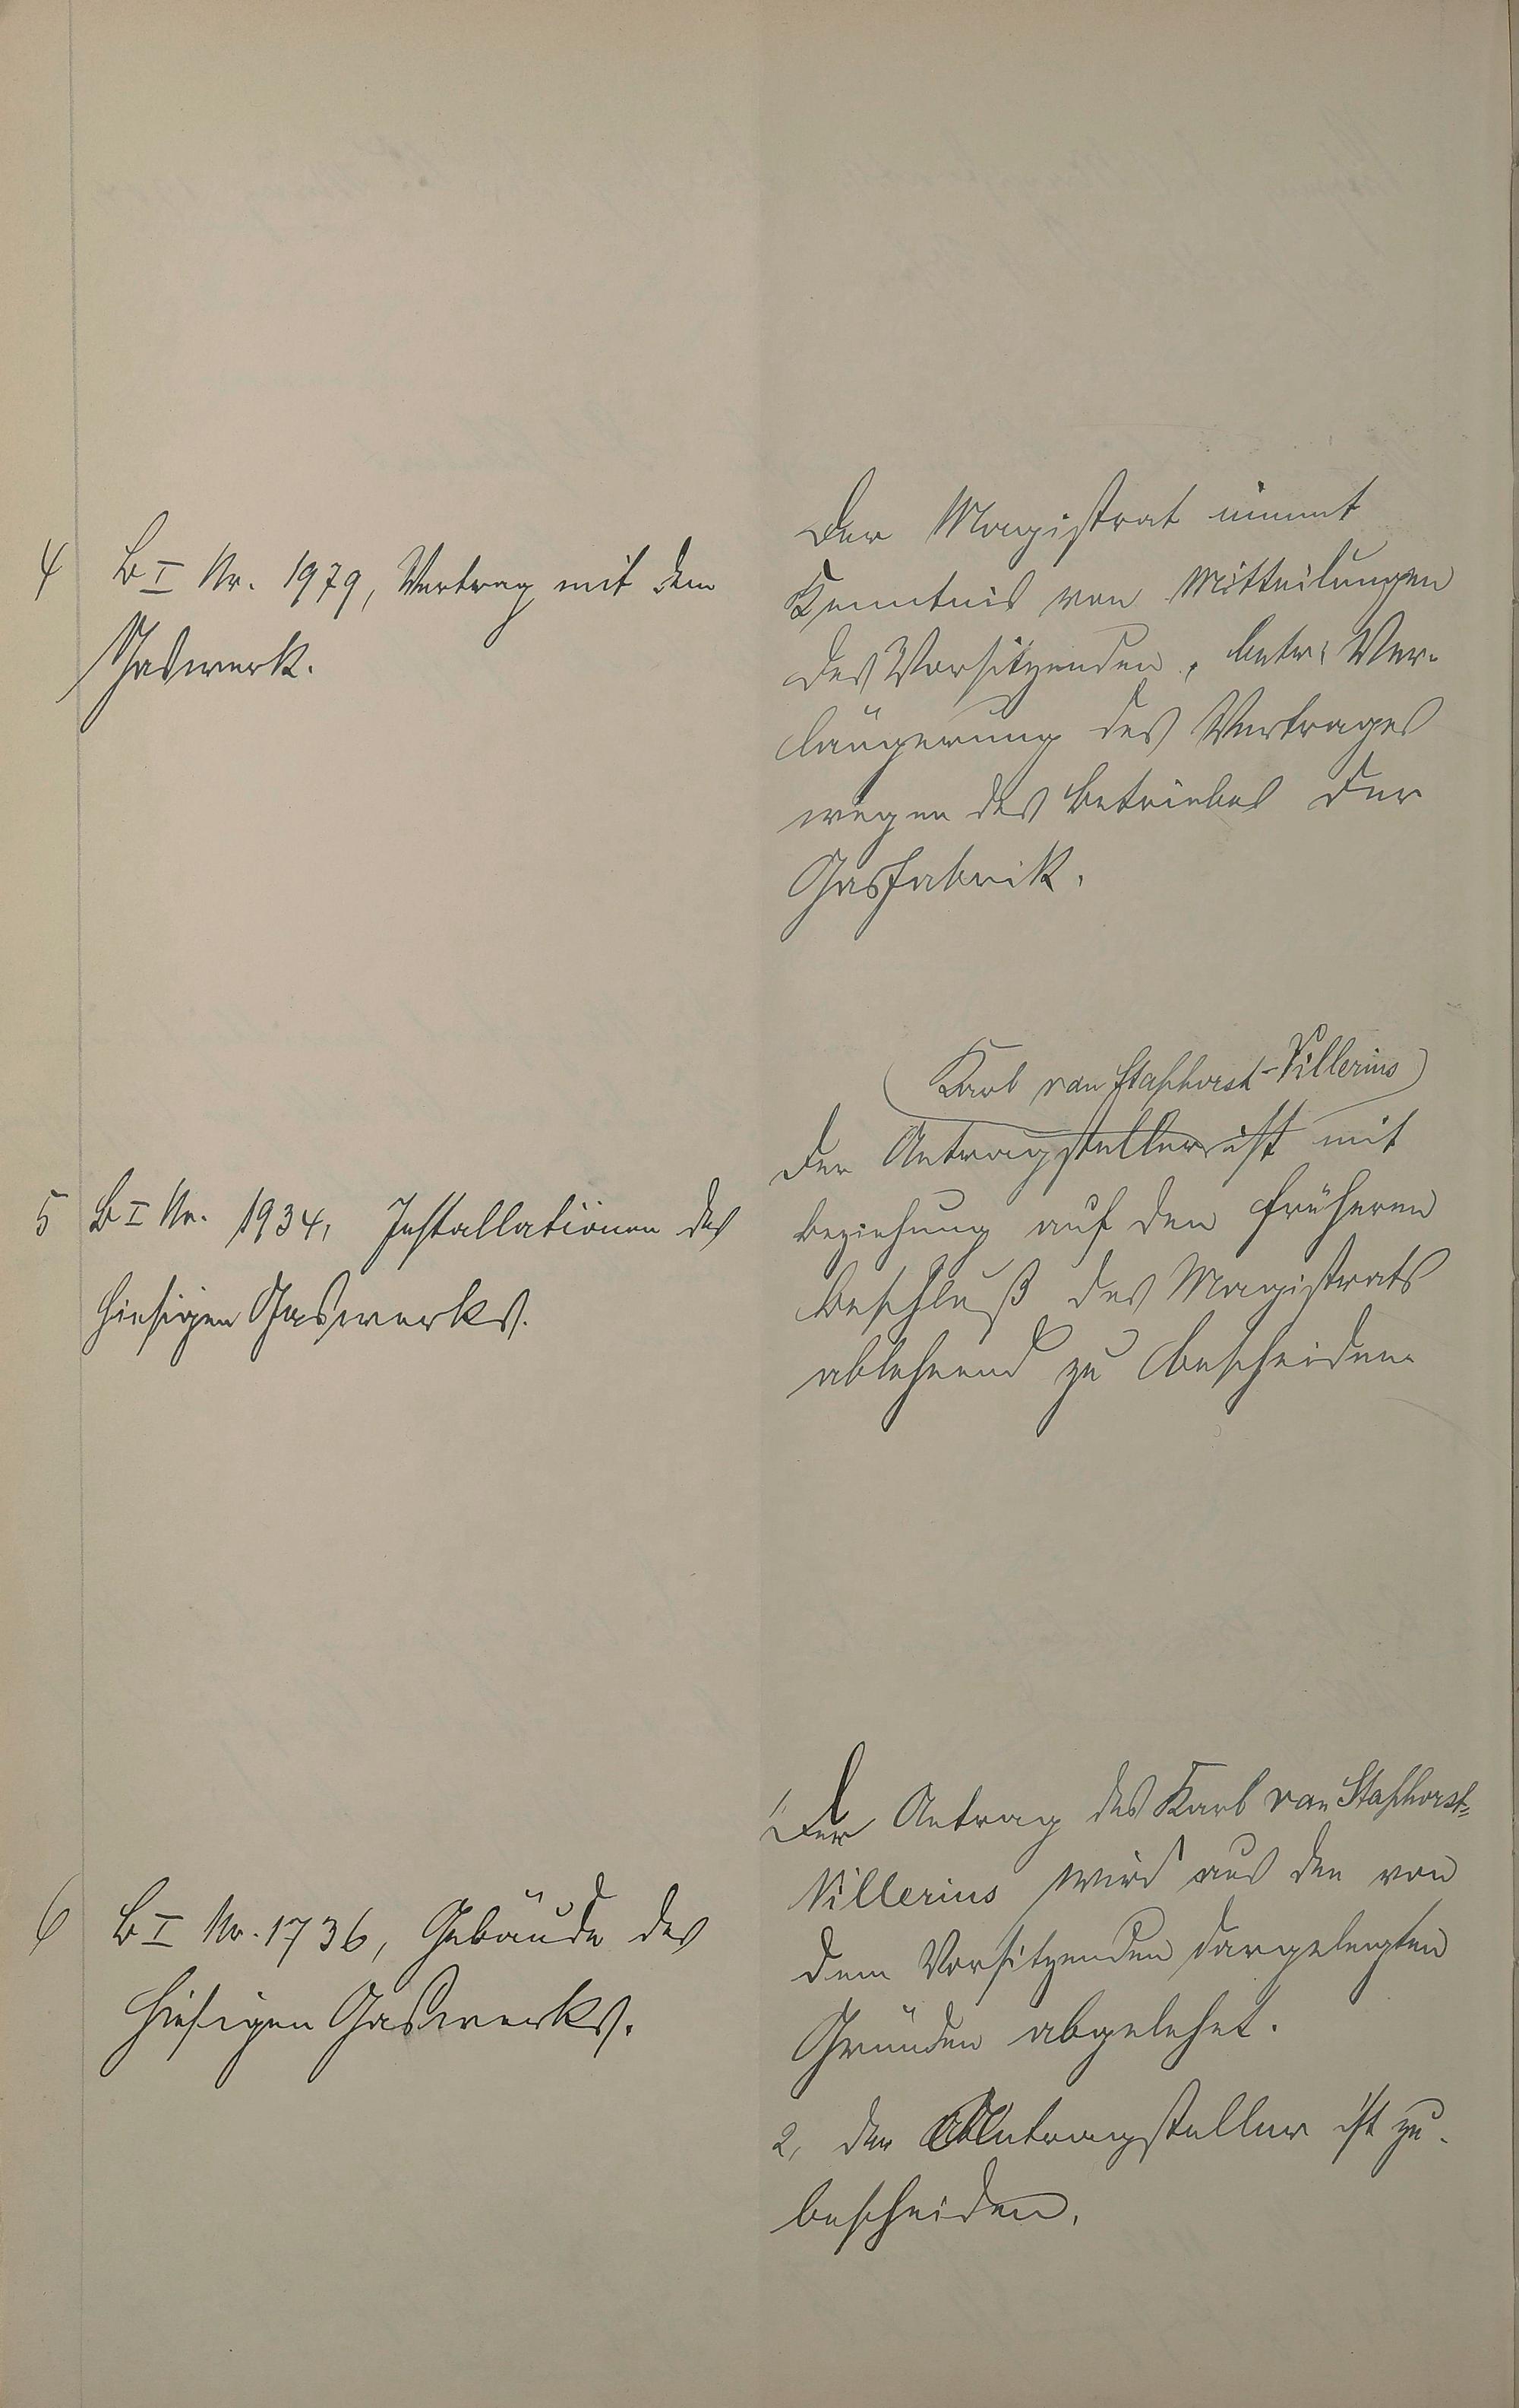 4 B I Nr. 1979, Vertrag mit dem
Gaswerk.
Der Magistrat nimmt
Kenntnis von Mitteilungen
des Vorsitzenden, betr. Ver-
längerung des Vertrages
wegen des Betriebes der
Gasfabrik.
5 B I Nr. 1934, Installationen des
hiesigen Gaswerks.
(Karl van Staphorst-Villerius)
Der Antragsteller ist mit
Beziehung auf den früheren
Beschluß des Magistrats
ablehnend zu bescheiden.
6 B I Nr. 1736, Gebäude des
hiesigen Gaswerks.
1, Der Antrag des Karl van Staphorst=
Villerius wird aus den von
dem Vorsitzenden dargelegten
Gründen abgelehnt.
2, Der Antragsteller ist zu
bescheiden.